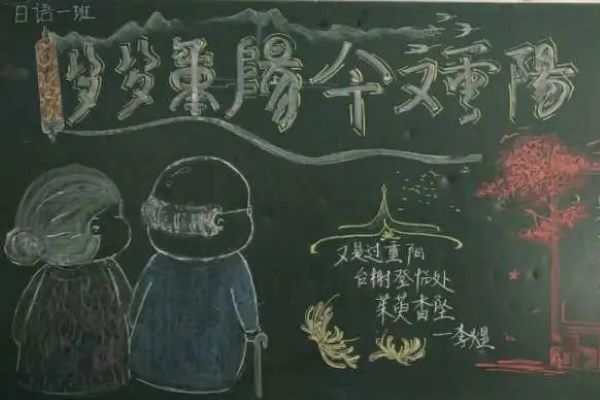 日语一班
岁岁重陽今又重陽
又是过重阳
台榭登临处
茱萸香坠
—李煜